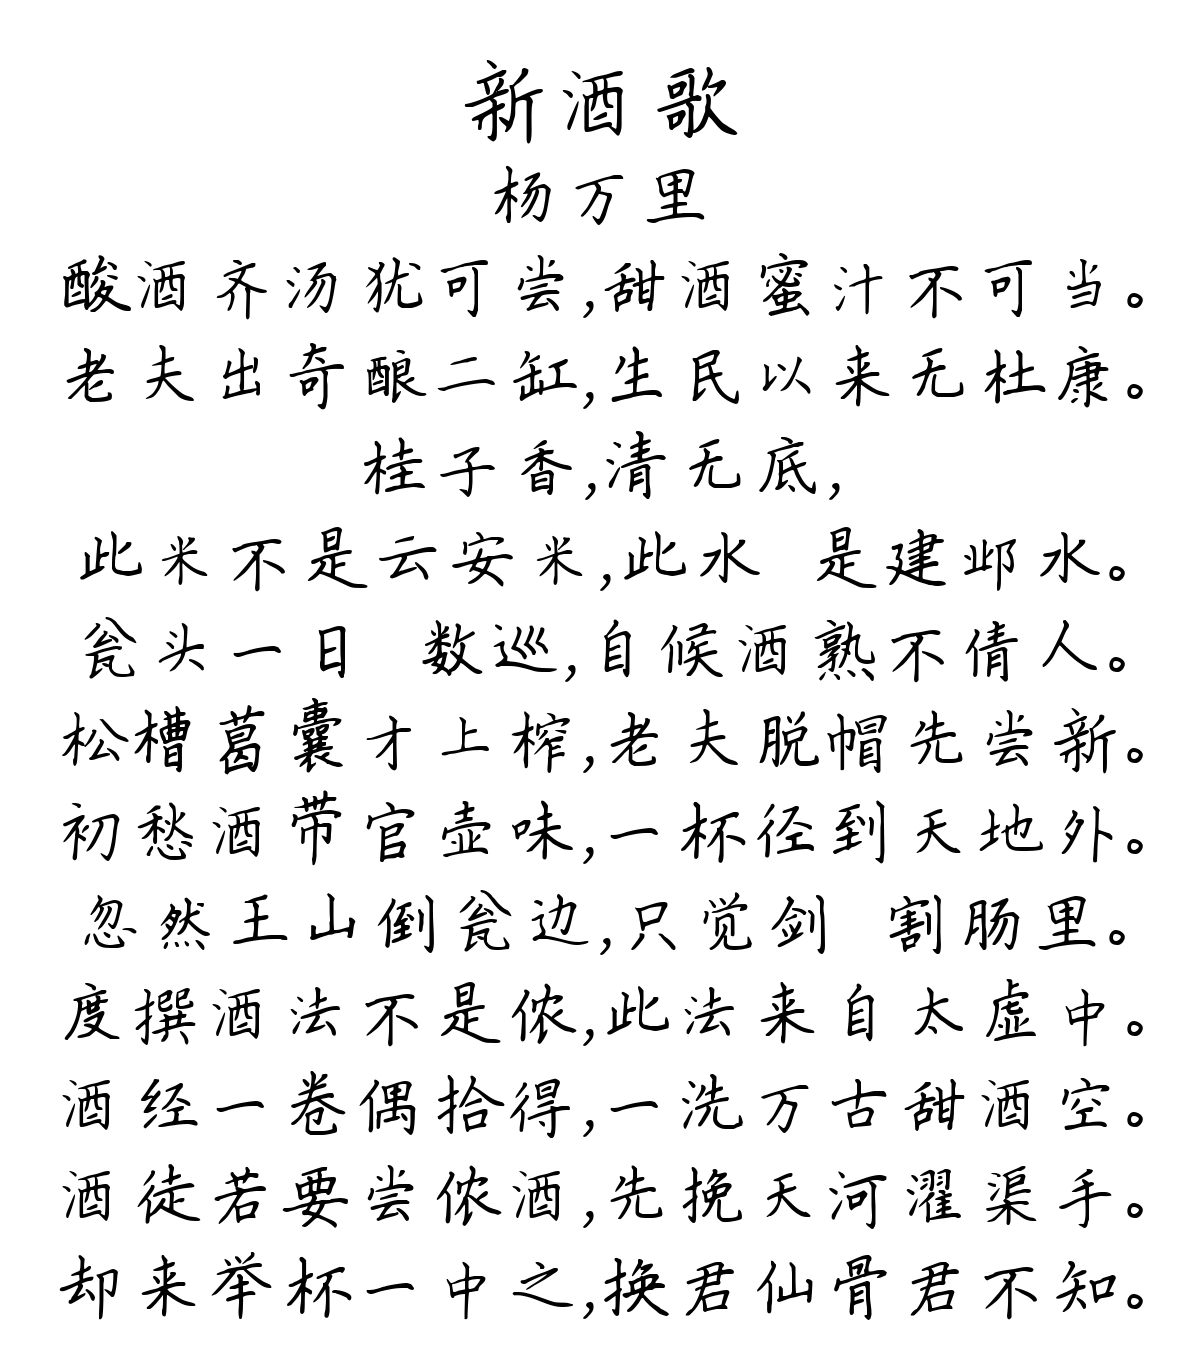 新酒歌
杨万里
酸酒齐汤犹可尝,甜酒蜜汁不可当。
老夫出奇酿二缸,生民以来无杜康。
桂子香,清无底,
此米不是云安米,此水 是建邺水。
瓮头一日 数巡,自候酒熟不倩人。
松槽葛囊才上榨,老夫脱帽先尝新。
初愁酒带官壶味,一杯径到天地外。
忽然王山倒瓮边,只觉剑 割肠里。
度撰酒法不是侬,此法来自太虚中。
酒经一卷偶拾得,一洗万古甜酒空。
酒徒若要尝侬酒,先挽天河濯渠手。
却来举杯一中之,换君仙骨君不知。